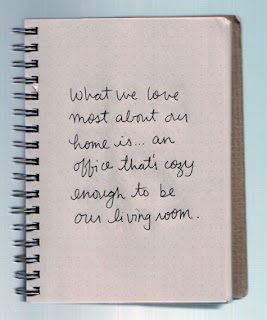 What we love
most about our
home is... an
office that's cozy
enough to be
our living room.